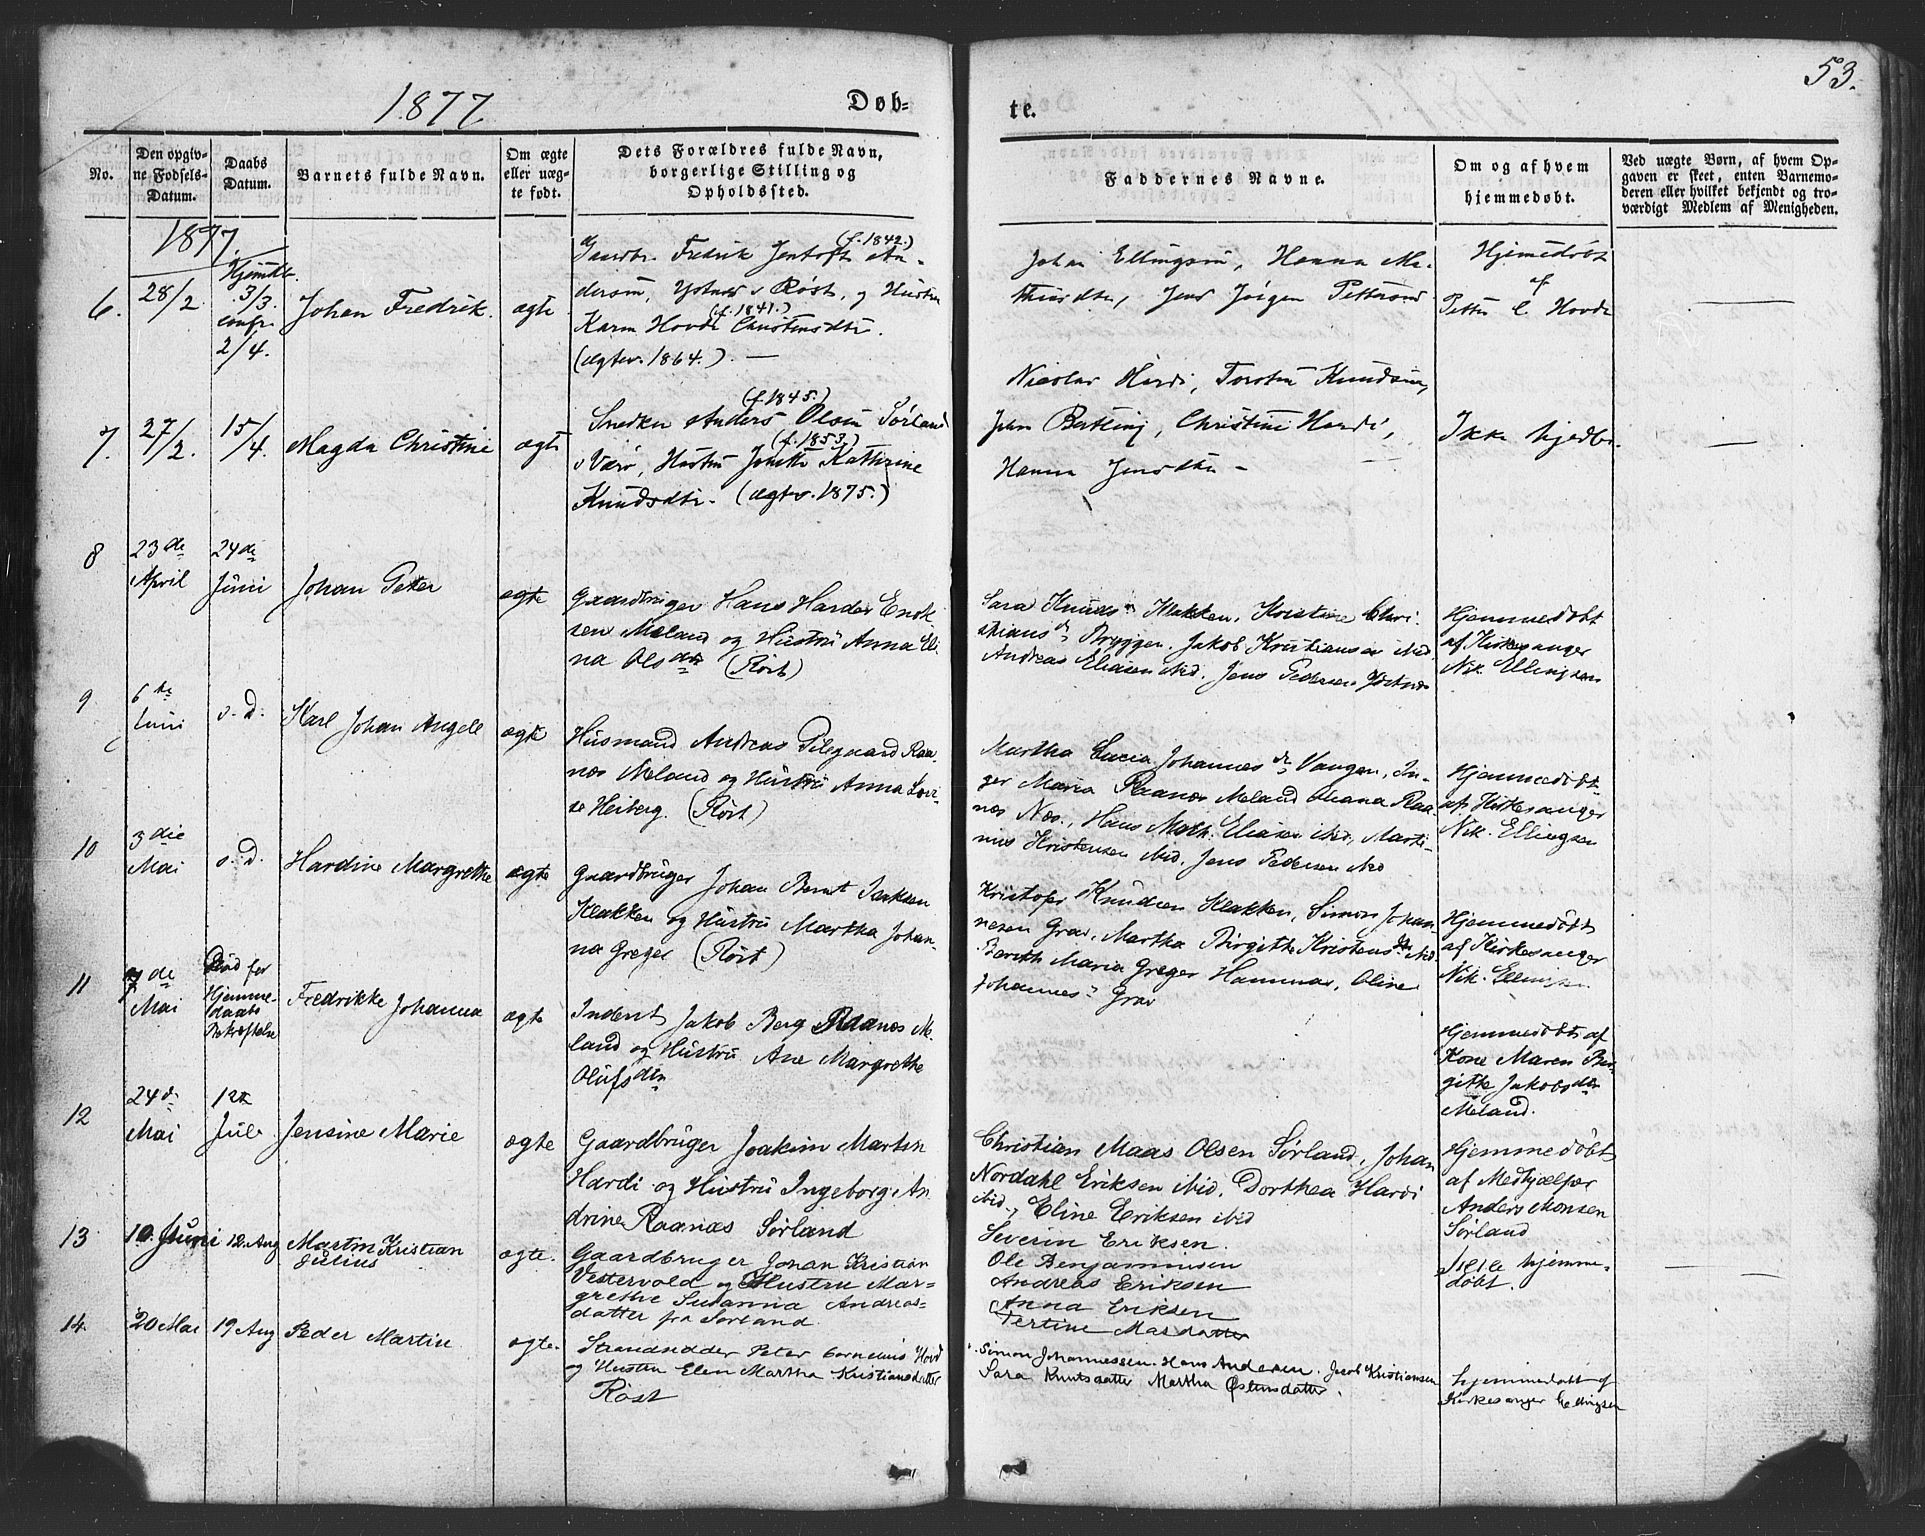 1877.
Døb-
te.
53.
No.
Den opgiv-
ne Fødsels-
Datum.
Daabs
Datum.
Barnets fulde Navn.
Om ægte
eller uæg-
te født.
Dets Forældres fulde Navn,
borgerlige Stilling og
Opholdssted.
Faddernes Navne.
Om og af hvem
hjemmedøbt.
Ved uægte Børn, af hvem Op-
gaven er skeet, enten Barnemo-
deren eller hvilket bekjendt og tro-
værdigt Medlem af Menigheden.
1877.
6.
28/2
3/3.
confr.
2/4.
Johan Fredrik.
ægte
(f. 1842.)
Gaardbr. Fredrik Jentoft An-
dersen, Røst, og Hustru
(f. 1841.)
Karen Hovde Christensdtr.
(ægtev. 1864.) —
Johan Ellingsen, Hanna Ma-
Jens Jørgen Pettersen
Hjemmedøbt
af
Petter C. Hovde
7.
27/2.
15/4.
Magda Christine
ægte
(f. 1845.)
Snedker Anders Olsen Sørland
(f. 1853.)
Værø, Hustru Kathrine
Knudsdtr. (ægtv. 1875.)
Nicolai Hardi, Torsten Knudsen,
John Berthing, Christine Hardi,
Hanna Jensdtr –
Ikke hjedbt.
8
23de
April
24de
Juni
Johan Peter
ægte
Gaardbruger Hans Harder Erik-
sen Meland og Hustru Anna Eli-
na Olsdtr (Røst)
Sara Knuds Klakken, Kristine Chri-
stians Bryggen. Jakob Kristiansen ibid.
Andreas Eliasen ibid. Jens Pedersen
Hjemmedøbt
af Kirkesanger
Nik. Ellingsen
9
6te
Juni
s. D.
Karl Johan Angell
ægte
Husmand Andreas Pilegaard Raa-
næs Meland og Hustru Anna Lovi-
se Heiberg. (Røst)
Martha Lucia Johannes Vangen, In-
ger Maria Raanæs Meland Raa-
næs Næs., Hans Math. Eliasen ibid, Marti-
nus Kristensen ibid. Jens Pedersen ibid
Hjemmedøbt
af Kirkesanger
Nik. Ellingsen
10
3die
Mai
s. D.
Hardine Margrethe
ægte
Gaardbruger Johan Bernt Isaksen
Klakken og Hustru Martha Johan-
na Greger (Røst)
Kristofer Knudsen Klakken, Simon Johan-
nesen Grav, Martha Birgithe Kristensdtr ibid
Bereth Maria Greger Hammar, Oline
Johannes Grav
Hjemmedøbt
af Kirkesanger
Nik. Ellingsen
11
7de
Mai
Død før
Hjemme-
daabs
Bekræftelse
Fredrikke Johanna
ægte
Inderst Jakob Berg Raanæs Me-
land og Hustru Ane Margrethe
Olufsdtr
Hjemmedøbt af
Kone Maren Bir-
gitte Jakobsdtr
Meland.
12
24de
Mai
1ste
Juli
Jensine Marie
ægte
Gaardbruger Joakim Martin
Hardi og Hustru Ingeborg An-
drine Raanæs Sørland
Christian Maas Olsen Sørland, Johan
Nordahl Eriksen ibid, Dorthea Hardi
ibid., Eline Eriksen ibid
Hjemmedøbt
af Medhjælper
Anders Monsen
Sørland
13
10. Juni
12. Aug
Martin Kristian
Julius
ægte.
Gaardbruger Johan Kristian
Vestervold og Hustru Mar-
grethe Susanna Andreas-
datter fra Sørland.
Severin Eriksen.
Ole Benjaminsen
Andreas Eriksen
Anna Eriksen
Pertine Masdatter
Ikke hjemme-
døbt.
14
20 Mai
19 Aug
Peder Martin
ægte.
Strandsidder Peter Cornelius Hovd
og Hustru Elen Martha Kristiansdatter
Røst
Simon Johannessen. Hans Andersen. Jacob Kristiansen
Sara Knutsdatter Martha Østensdatter.
hjemmedøbt af
Kirkesanger Ellingsen